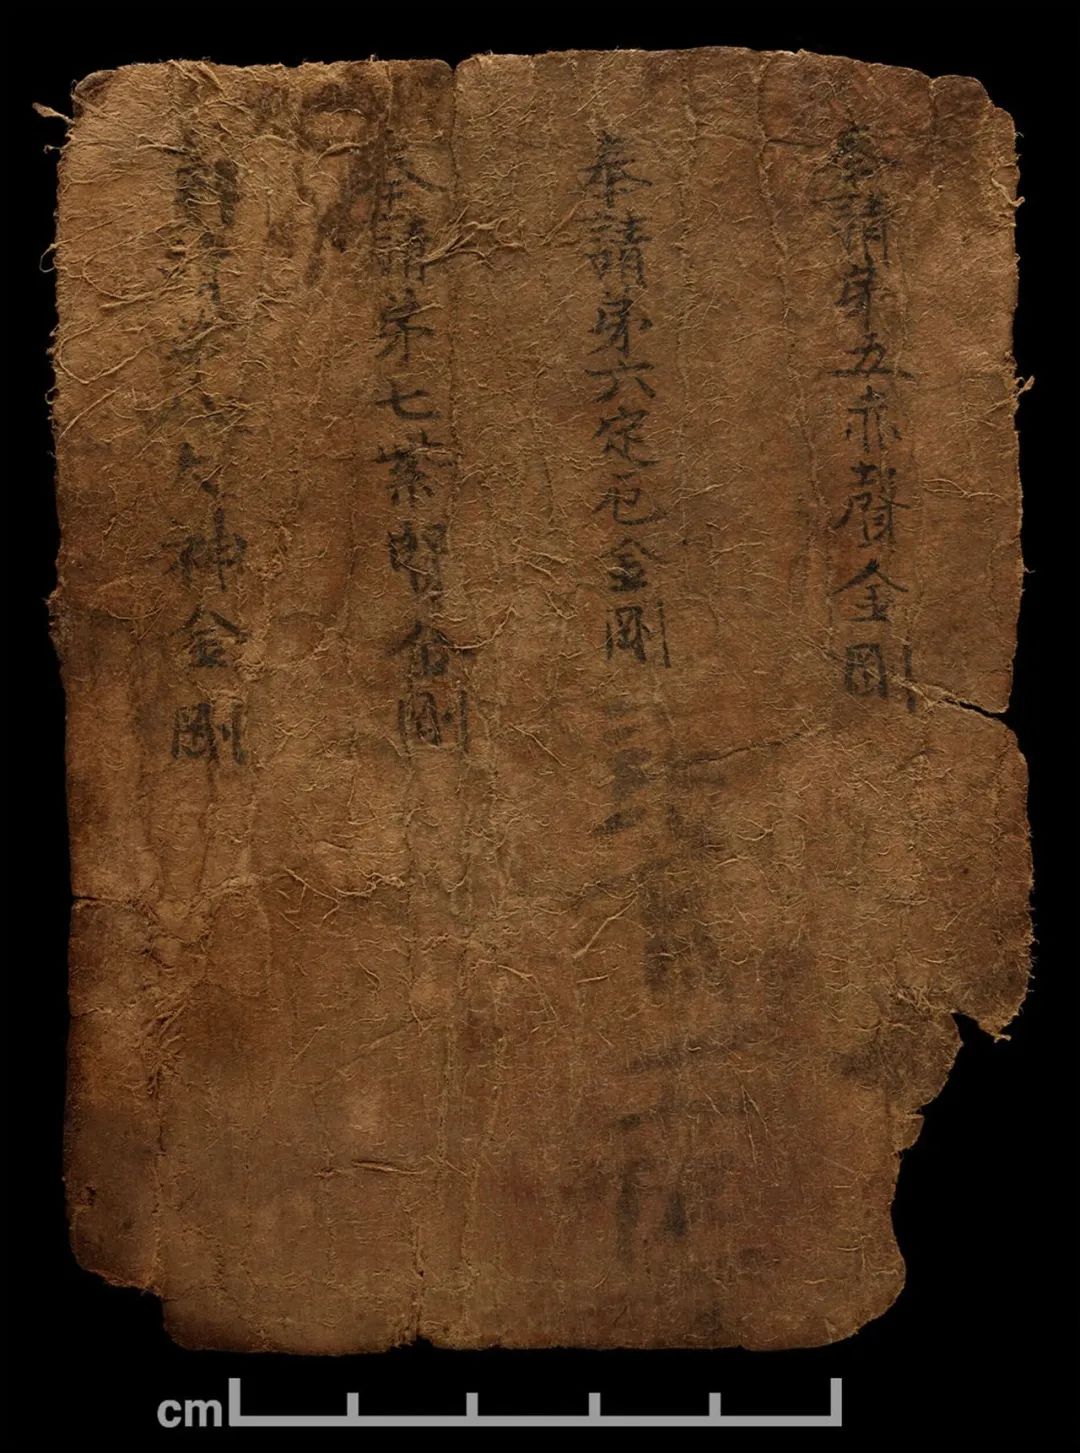 奉請苐五赤聲金剛
奉請苐六定厄金剛
奉請苐七紫賢金剛
請苐八大神金剛
cm